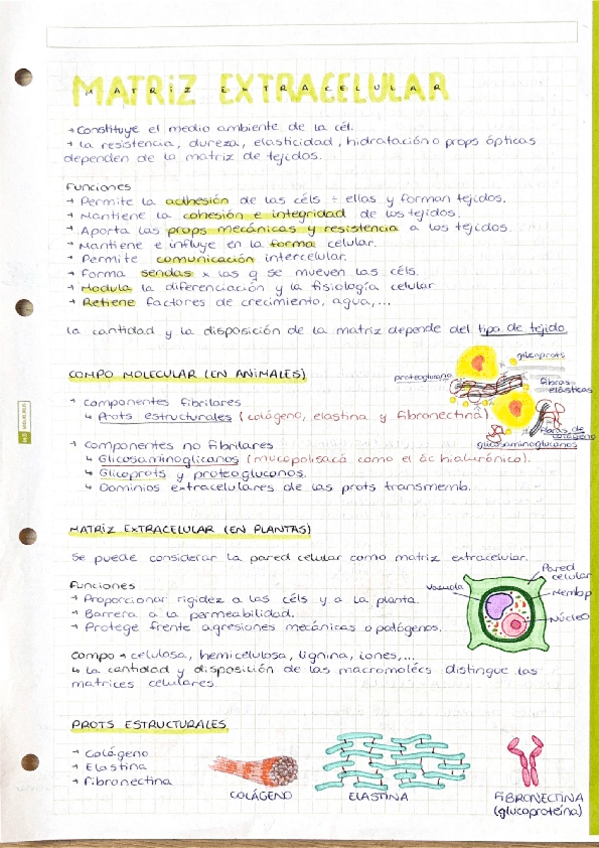 MATRIZ EXTRACELULAR
→ Constituye el medio ambiente de la cél.
→ La resistencia, dureza, elasticidad, hidratación o props ópticas
dependen de la matriz de tejidos.
Funciones
→ Permite la adhesión de las céls ÷ ellas y forman tejidos.
→ Mantiene la cohesión e integridad de los tejidos.
→ Aporta las props mecánicas y resistencia a los tejidos
→ Mantiene e influye en la forma celular.
→ Permite comunicación intercelular.
→ Forma sendas x las q se mueven las céls.
→ Modula la diferenciación y la fisiología celular
→ Retiene factores de crecimiento, agua,...
La cantidad y la disposición de la matriz depende del tipo de tejido
COMPO MOLECULAR (EN ANIMALES)
glicoprots
proteoglucano
fibras
elásticas
fibras de
colágeno
glucosaminoglucanos
→ Componentes fibrilares
↳ Prots estructurales (colágeno, elastina y fibronectina)
→ Componentes no fibrilares
↳ Glicosaminoglicanos (mucopolisacá como el ác hialurónico).
↳ Glicoprots y proteoglucanos.
↳ Dominios extracelulares de las prots transmemb.
MATRIZ EXTRACELULAR (EN PLANTAS)
Se puede considerar la pared celular como matriz extracelular.
Funciones
→ Proporcionar rigidez a las céls y a la planta.
→ Barrera a la permeabilidad.
→ Protege frente agresiones mecánicas o patógenos.
Vacuola
Pared
celular
Memb p
Núcleo
Compo → celulosa, hemicelulosa, lignina, iones,...
↳ La cantidad y disposición de las macromolécs distingue las
matrices celulares.
PROTS ESTRUCTURALES
→ Colágeno
→ Elastina
→ Fibronectina
COLÁGENO
ELASTINA
FIBRONECTINA
(glucoproteína)